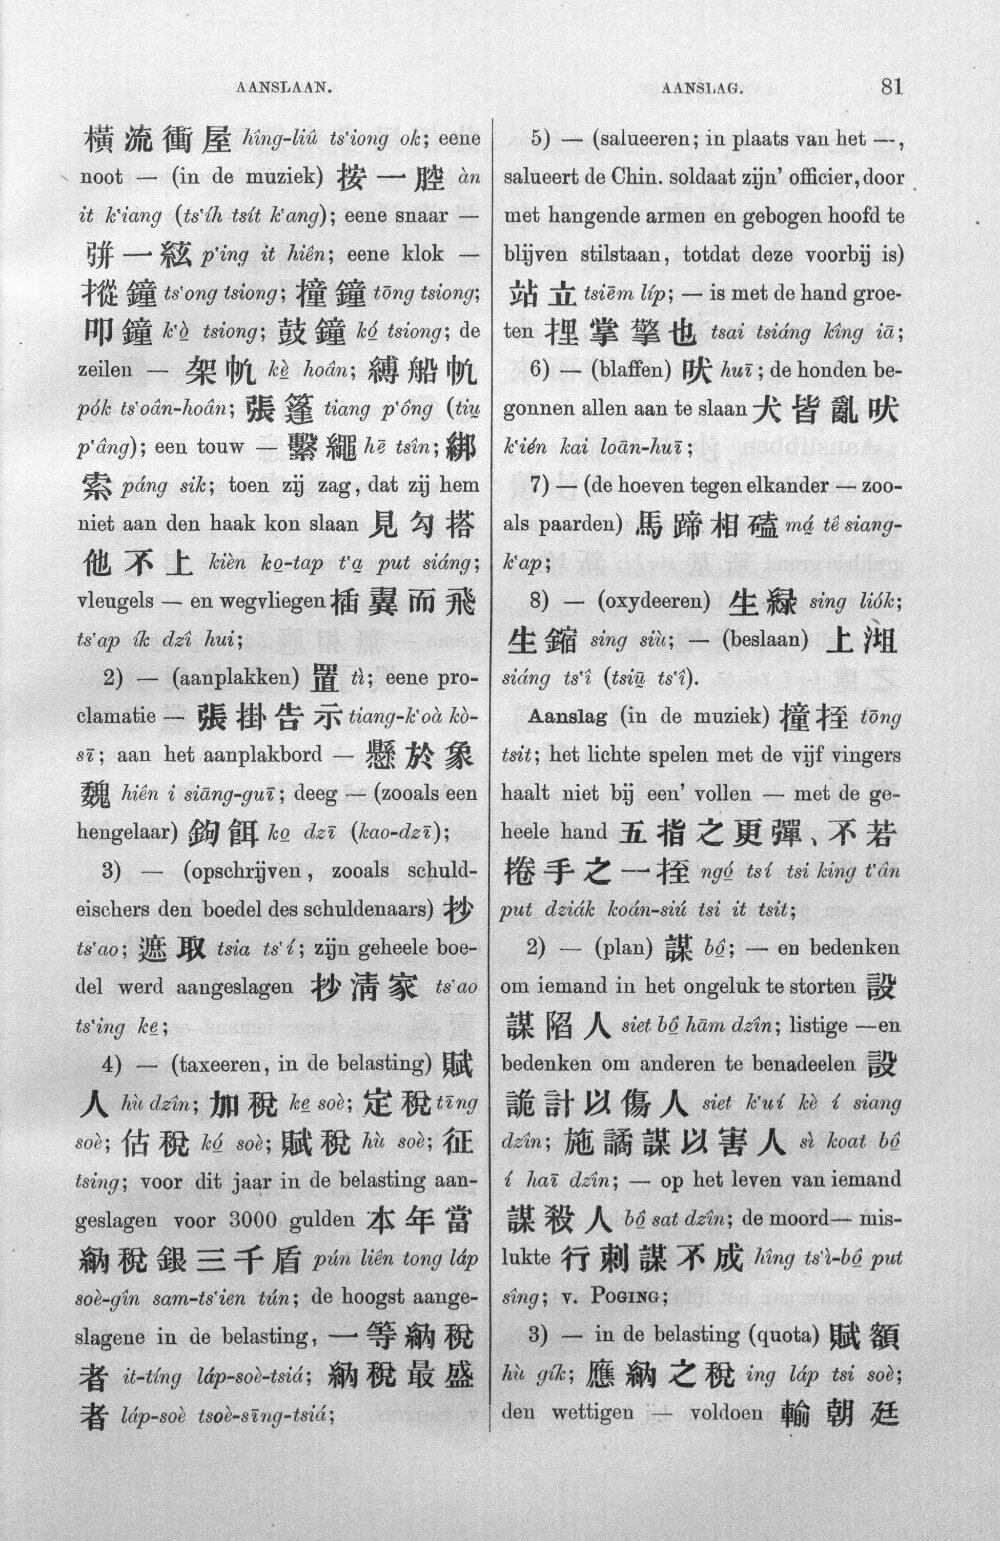 AANSLAAN.
AANSLAG.
81
橫流衝屋 hîng-liû ts‘iong ok; eene
noot — (in de muziek) 按一腔 àn
it k‘iang (ts‘íh tsít k‘ang); eene snaar —
弸一絃 p‘ing it hiên; eene klok —
摐鐘 ts‘ong tsiong; 撞鐘 tōng tsiong;
叩鐘 k‘ò̤ tsiong; 鼓鐘 kó̤ tsiong; de
zeilen — 架帆 kè̤ hoân; 縛船帆
pók ts‘oân-hoân; 張篷 tiang p‘ông (tiṳ
p‘âng); een touw — 繫繩 hē tsîn; 綁
索 páng sik; toen zij zag, dat zij hem
niet aan den haak kon slaan 見勾搭
他不上 kièn ko̤-tap t‘a̤ put siáng;
vleugels — en wegvliegen 插翼而飛
ts‘ap ík dzî hui;
2) — (aanplakken) 置 tì; eene pro-
clamatie — 張掛告示 tiang-k‘oà kò-
sī; aan het aanplakbord — 懸於象
魏 hiên i siāng-guī; deeg — (zooals een
hengelaar) 鉤餌 ko̤ dzī (kao-dzī);
3) — (opschrijven, zooals schuld-
eischers den boedel des schuldenaars) 抄
ts‘ao; 遮取 tsia ts‘í; zijn geheele boe-
del werd aangeslagen 抄清家 ts‘ao
ts‘ing ke̤;
4) — (taxeeren, in de belasting) 賦
人 hù dzîn; 加稅 ke̤ soè; 定稅 tīng
soè; 估稅 kó̤ soè; 賦稅 hù soè; 征
tsing; voor dit jaar in de belasting aan-
geslagen voor 3000 gulden 本年當
納稅銀三千盾 pún liên tong láp
soè-gîn sam-ts‘ien tún; de hoogst aange-
slagene in de belasting, 一等納稅
者 it-tíng láp-soè-tsiá; 納稅最盛
者 láp-soè tsoè-sīng-tsiá;
5) — (salueeren; in plaats van het —,
salueert de Chin. soldaat zijn’ officier, door
met hangende armen en gebogen hoofd te
blijven stilstaan, totdat deze voorbij is)
站立 tsiēm líp; — is met de hand groe-
ten 捚掌擎也 tsai tsiáng kîng iā;
6) — (blaffen) 吠 huī; de honden be-
gonnen allen aan te slaan 犬皆亂吠
k‘ién kai loān-huī;
7) — (de hoeven tegen elkander — zoo-
als paarden) 馬蹄相磕 má̤ tê siang-
k‘ap;
8) — (oxydeeren) 生綠 sing liók;
生鏥 sing siù; — (beslaan) 上漗
siáng ts‘î (tsiṳ̄ ts‘î).
Aanslag (in de muziek) 撞挃 tōng
tsit; het lichte spelen met de vijf vingers
haalt niet bij een’ vollen — met de ge-
heele hand 五指之更彈、不若
捲手之一挃 ngó̤ tsí tsi king t‘ân
put dziák koán-siú tsi it tsit;
2) — (plan) 謀 bô̤; — en bedenken
om iemand in het ongeluk te storten 設
謀陷人 siet bô̤ hām dzîn; listige — en
bedenken om anderen te benadeelen 設
詭計以傷人 siet k‘uí kè í siang
dzîn; 施譎謀以害人 sì koat bô̤
í haī dzîn; — op het leven van iemand
謀殺人 bô̤ sat dzîn; de moord— mis-
lukte 行刺謀不成 hîng ts‘ì-bô̤ put
sîng; v. POGING;
3) — in de belasting (quota) 賦額
hù gík; 應納之稅 ing láp tsi soè;
den wettigen — voldoen 輸朝廷